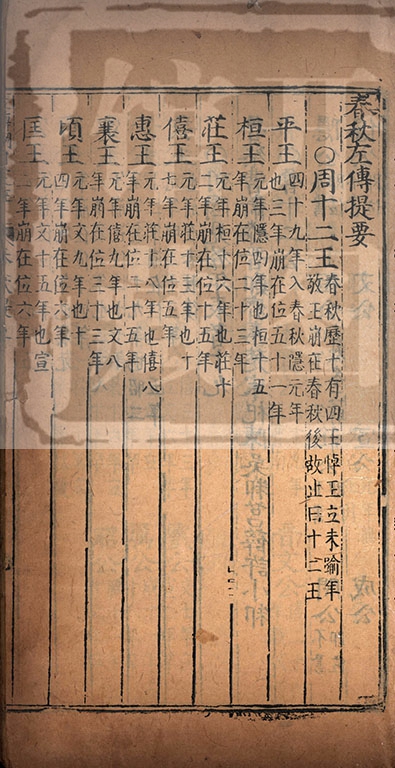 春秋左傳提要
〇周十二王
春秋歷十有四王悼王立未踰年
敬王崩在春秋後故止曰十二王
平王
四十九年入春秋隱元年
也三年崩在位五十一年
桓王
元年隱四年也桓十五
年崩在位二十三年
莊王
元年桓十六年也莊十
二年崩在位十五年
僖王
元年莊十三年也十
七年崩在位五年
惠王
元年莊十八年也僖八
年崩在位二十五年
襄王
元年僖九年也文八
年崩在位三十三年
頃王
元年文九年也十
四年崩在位六年
匡王
元年文十五年也宣
二年崩在位六年